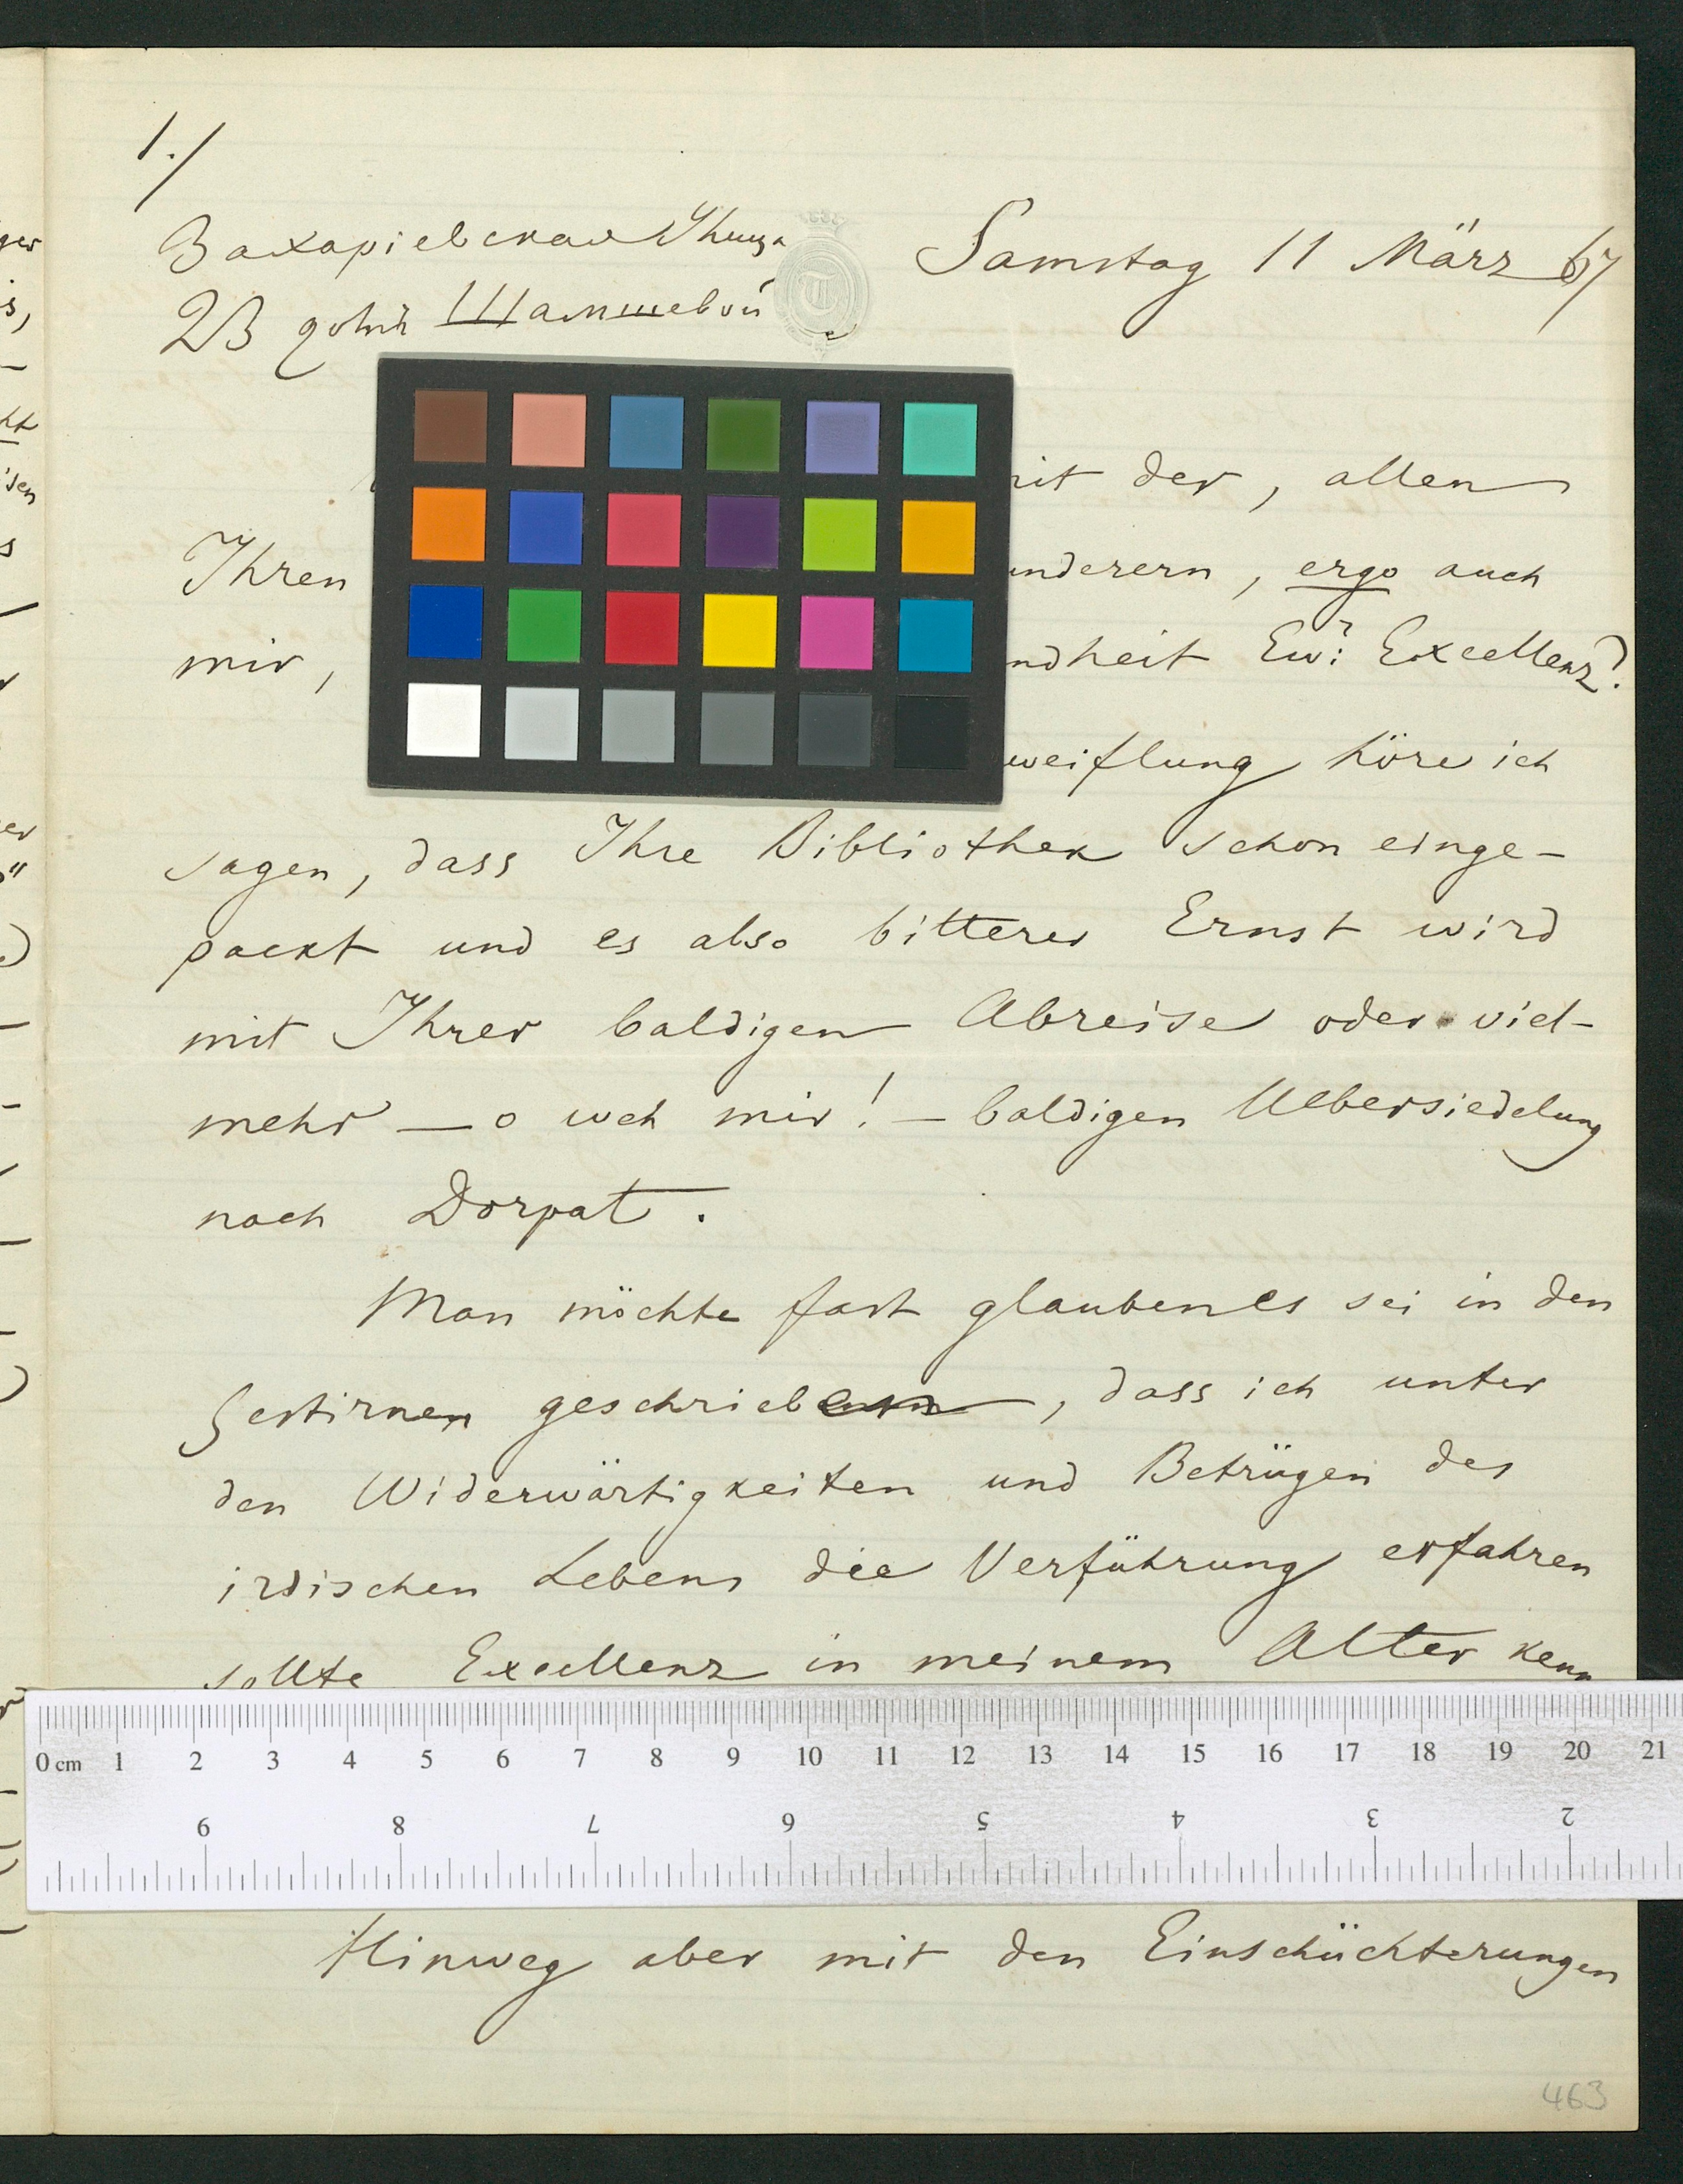 1./
Захарiевская Улица
Samstag 11 März 67
23 домъ Шаmшевой
mit der, allen
Ihren underern, ergo auch
mir, ndheit Ew: Excellenz?
weiflung höre ich
sagen, dass Ihre Bibliothek schon einge-
packt und es also bitterer Ernst wird
mit Ihrer baldigen Abreise oder viel-
mehr — o weh mir! — baldigen Uebersiedelung
nach Dorpat.
Man möchte fast glauben es sei in den
Gestirnen geschrieben, dass ich unter
den Widerwärtigkeiten und Betrügen des
irdischen Lebens die Verführung erfahren
sollte Excellenz in meinem Alter kenn
0 cm 1 2 3 4 5 6 7 8 9 10 11 12 13 14 15 16 17 18 19 20 21
9 8 7 6 5 4 3 2
Hinweg aber mit den Einschüchterungen
463